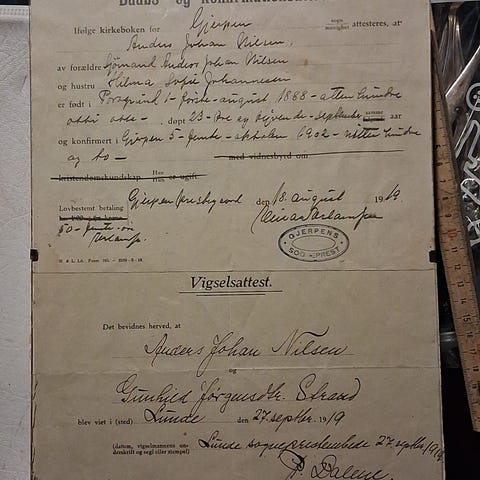 Daabs- og Konfirmationsattest
Ifølge kirkeboken for Gjerpen sogn menighet attesteres, at
Anders Johan Nilsen,
av forældre Sjømand Anders Johan Nilsen
og hustru Hilma Sofie Johannesen
er født i Porsgrund 1-første-august 1888 - atten hundre
otti otte - døpt 23-tre og tyvende-september samme aar
og konfirmert i Gjerpen 5-femte-oktober 1902-nitten hundre
og to - med vidnesbyrd om
kristendomskundskap Han er ugift.
Lovbestemt betaling Gjerpen prestegaard den 18. august 1919.
50-femti-øre
GJERPENS
SOGNEPREST
Vigselsattest.
Det bevidnes herved, at
Anders Johan Nilsen
og
Gunhild Jørgensdtr. Strand
blev viet i (sted) Lunde den 27. septbr. 1919
(datum, vigselmannens un-
derskrift og segl eller stempel)
Lunde sogneprestembede 27. septbr. 1919
P. Dalene.